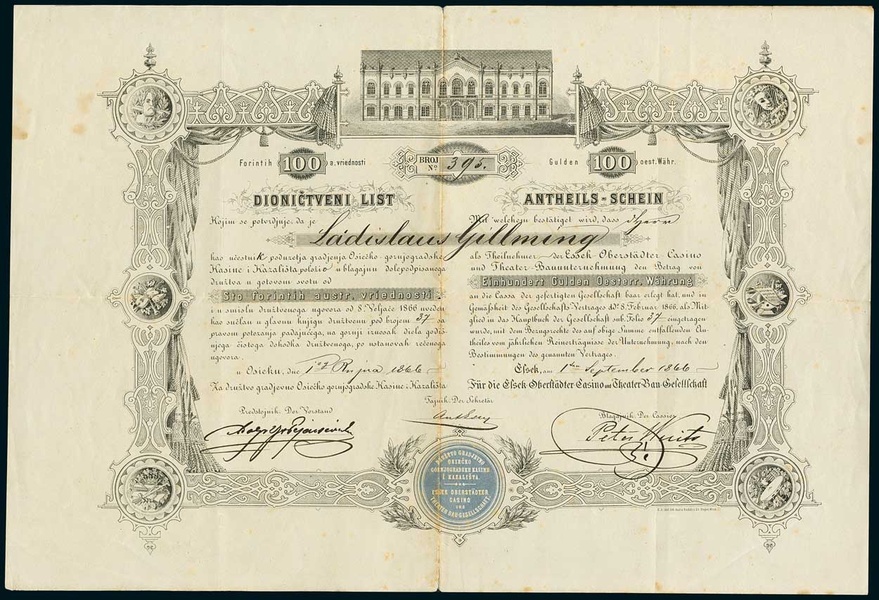 Forintih 100 a. vriednosti
BROJ
No. 395.
Gulden 100 oest. Währ.
DIONIČTVENI LIST
ANTHEILS-SCHEIN
Kojim se potvrdjuje, da je
Mit welchem bestätiget wird, dass Herr
Ladislaus Gillming
kao učestnik poduzetja gradjenja Osiečko-gornjogradske
Kasine i Kazališta položio u blagajnu dolepodpisanoga
družtva u gotovom svotu od
Sto forintih austr. vriednosti.
i u smislu družtvenoga ugovora od 8. Veljače 1866 uveden
kao sučlan u glavnu knjigu družtvenu pod brojem 37
pravom potezanja padajućega, na gornji iznosak diela godiš-
njega čistoga dohodka družtvenoga, po ustanovah rečenoga
ugovora.
u Osieku, dne 1og Rujna 1866
Za družtvo gradjevno Osiečko gornjogradske Kasine i Kazališta
als Theilnehmer der Essek Oberstädter Casino
und Theater Bauunternehmung den Betrag von
Einhundert Gulden Oesterr. Währung
an die Cassa der gefertigten Gesellschaft baar erlegt hat, und in
Gemäßheit des Gesellschafts-Vertrages dto 8. Februar 1866, als Mit-
glied in das Hauptbuch der Gesellschaft sub. Folio 37 eingetragen
wurde, mit dem Bezugsrechte des auf obige Summe entfallenden An-
theiles vom jährlichen Reinerträgnisse der Unternehmung, nach den
Bestimmungen des genannten Vertrages.
Essek, am 1ten September 1866
Für die Essek Oberstädter Casino und Theater Bau-Gesellschaft
Tajnik. Der Sekretär
Predstojnik. Der Vorstand
Blagajnik. Der Cassier
DRUŽTVO GRADJEVNO
OSIEČKO
GORNJOGRADSKE KASINE
I KAZALIŠTA
ESSEK OBERSTÄDTER
CASINO
UND
THEATER BAU-GESELLSCHAFT